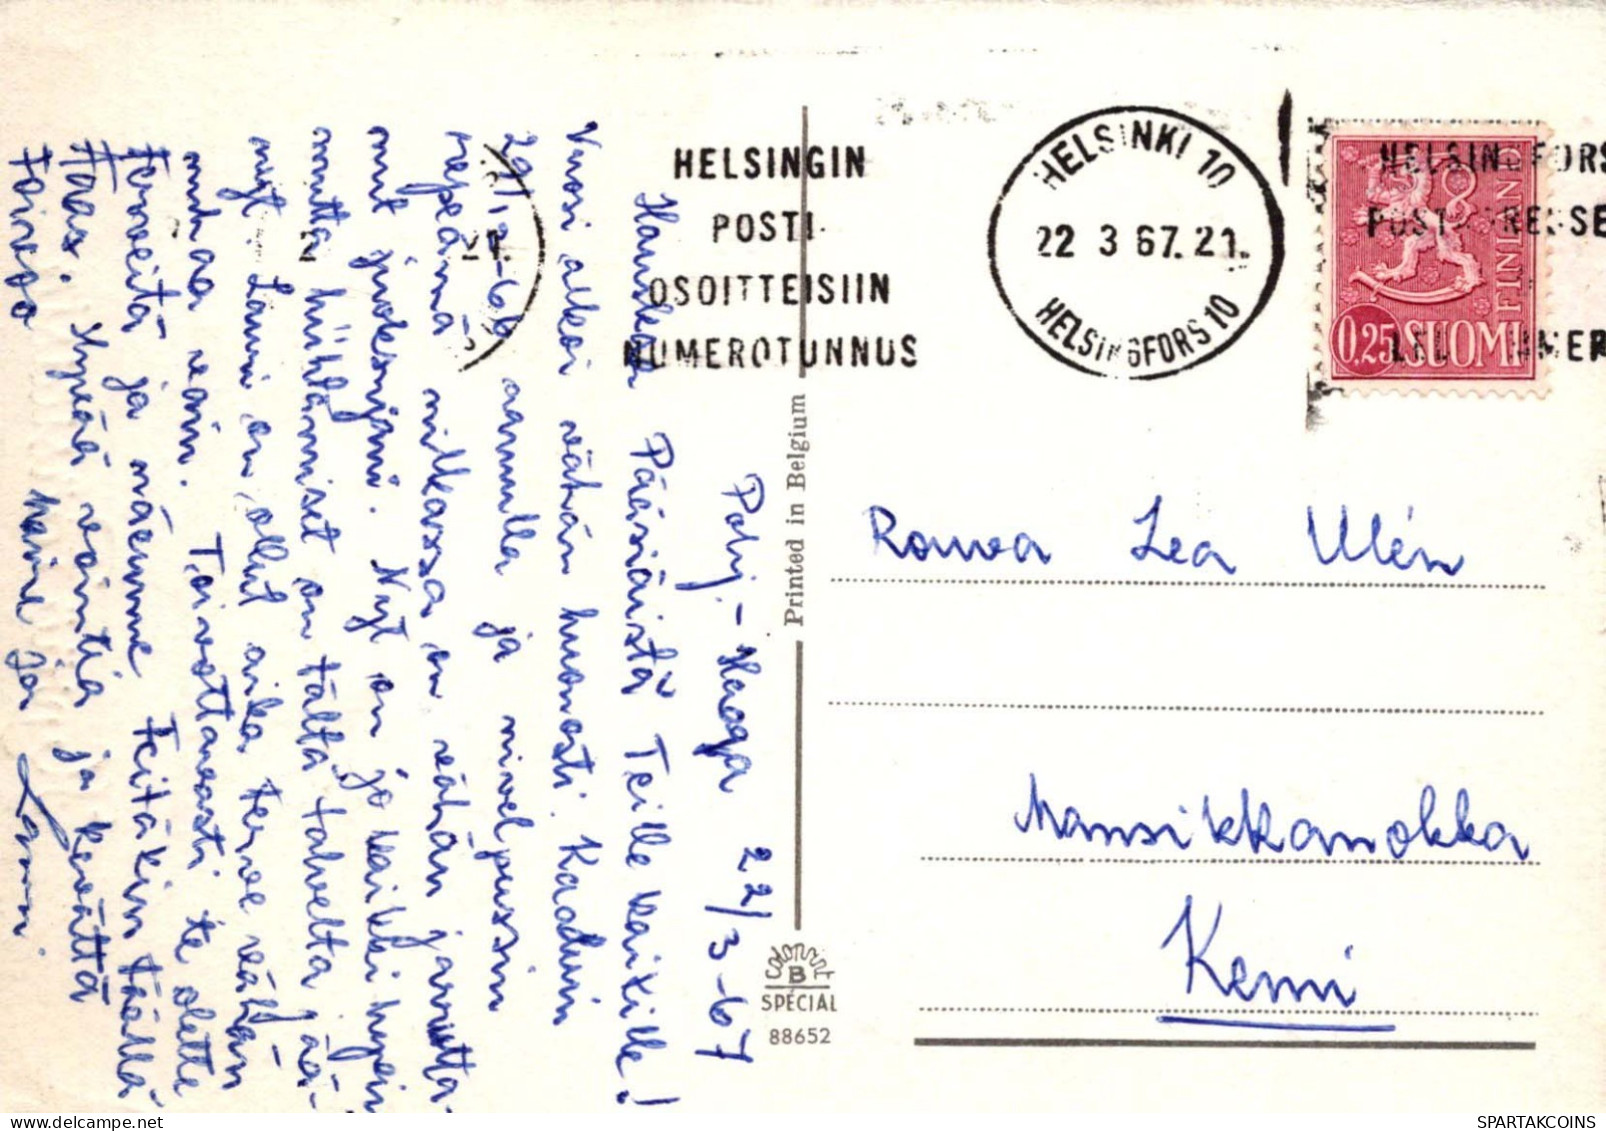 Pohj.-Haaga 22/3-67
Hauskaa Pääsiäistä Teille kaikille!
Vuosi alkoi vähän huonosti. Kaaduin
29/12-66 aamulla ja nivelpussin
repeämä nilkassa on vähän jarrutta-
nut juoksujani. Nyt on jo kaikki hyvin
mutta hiihtämiset on tältä talvelta jää-
nyt. Lauri on ollut aika terve vähän
nuhaa vain. Toivottavasti te olette
terveitä ja näemme Teitäkin täällä
Haas. Hyvää vointia ja kevättä
toivoo
ja Lauri.
HELSINGIN
POSTI-
OSOITTEISIIN
NUMEROTUNNUS
HELSINKI 10
22 3 67.21.
HELSINGFORS 10
HELSINGFORS
21.
FINLAND
0,25 SUOMI
Printed in Belgium
Rouva Lea Ulén
Mansikkanokka
Kemi
Colorprint
B
SPÉCIAL
88652
SPARTAKCOINS